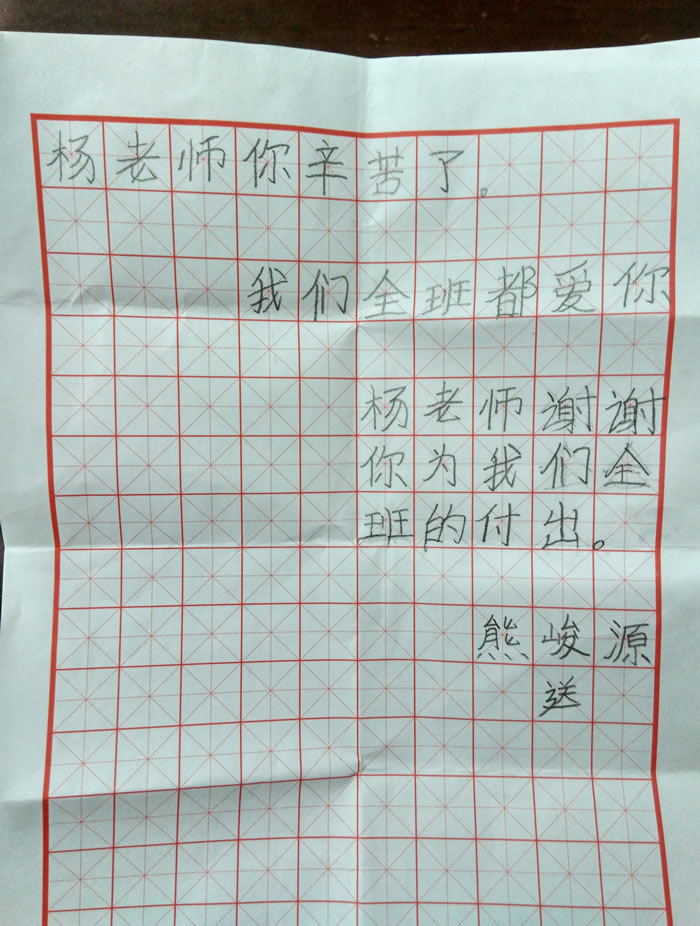 杨老师你辛苦了。
我们全班都爱你
杨老师谢谢
你为我们全
班的付出。
熊峻源
送